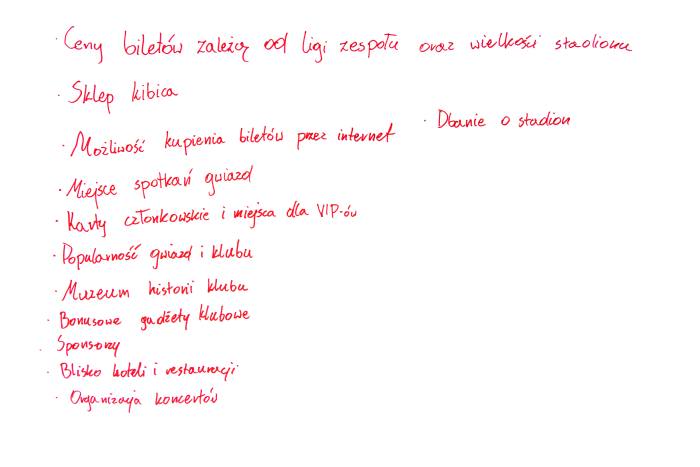 · Ceny biletów zależą od ligi zespołu oraz wielkości stadionu
· Sklep kibica
· Dbanie o stadion
· Możliwość kupienia biletów przez internet
· Miejsce spotkań gwiazd
· Karty członkowskie i miejsca dla VIP-ów
· Popularność gwiazd i klubu
· Muzeum historii klubu
· Bonusowe gadżety klubowe
· Sponsorzy
· Blisko hoteli i restauracji
· Organizacja koncertów